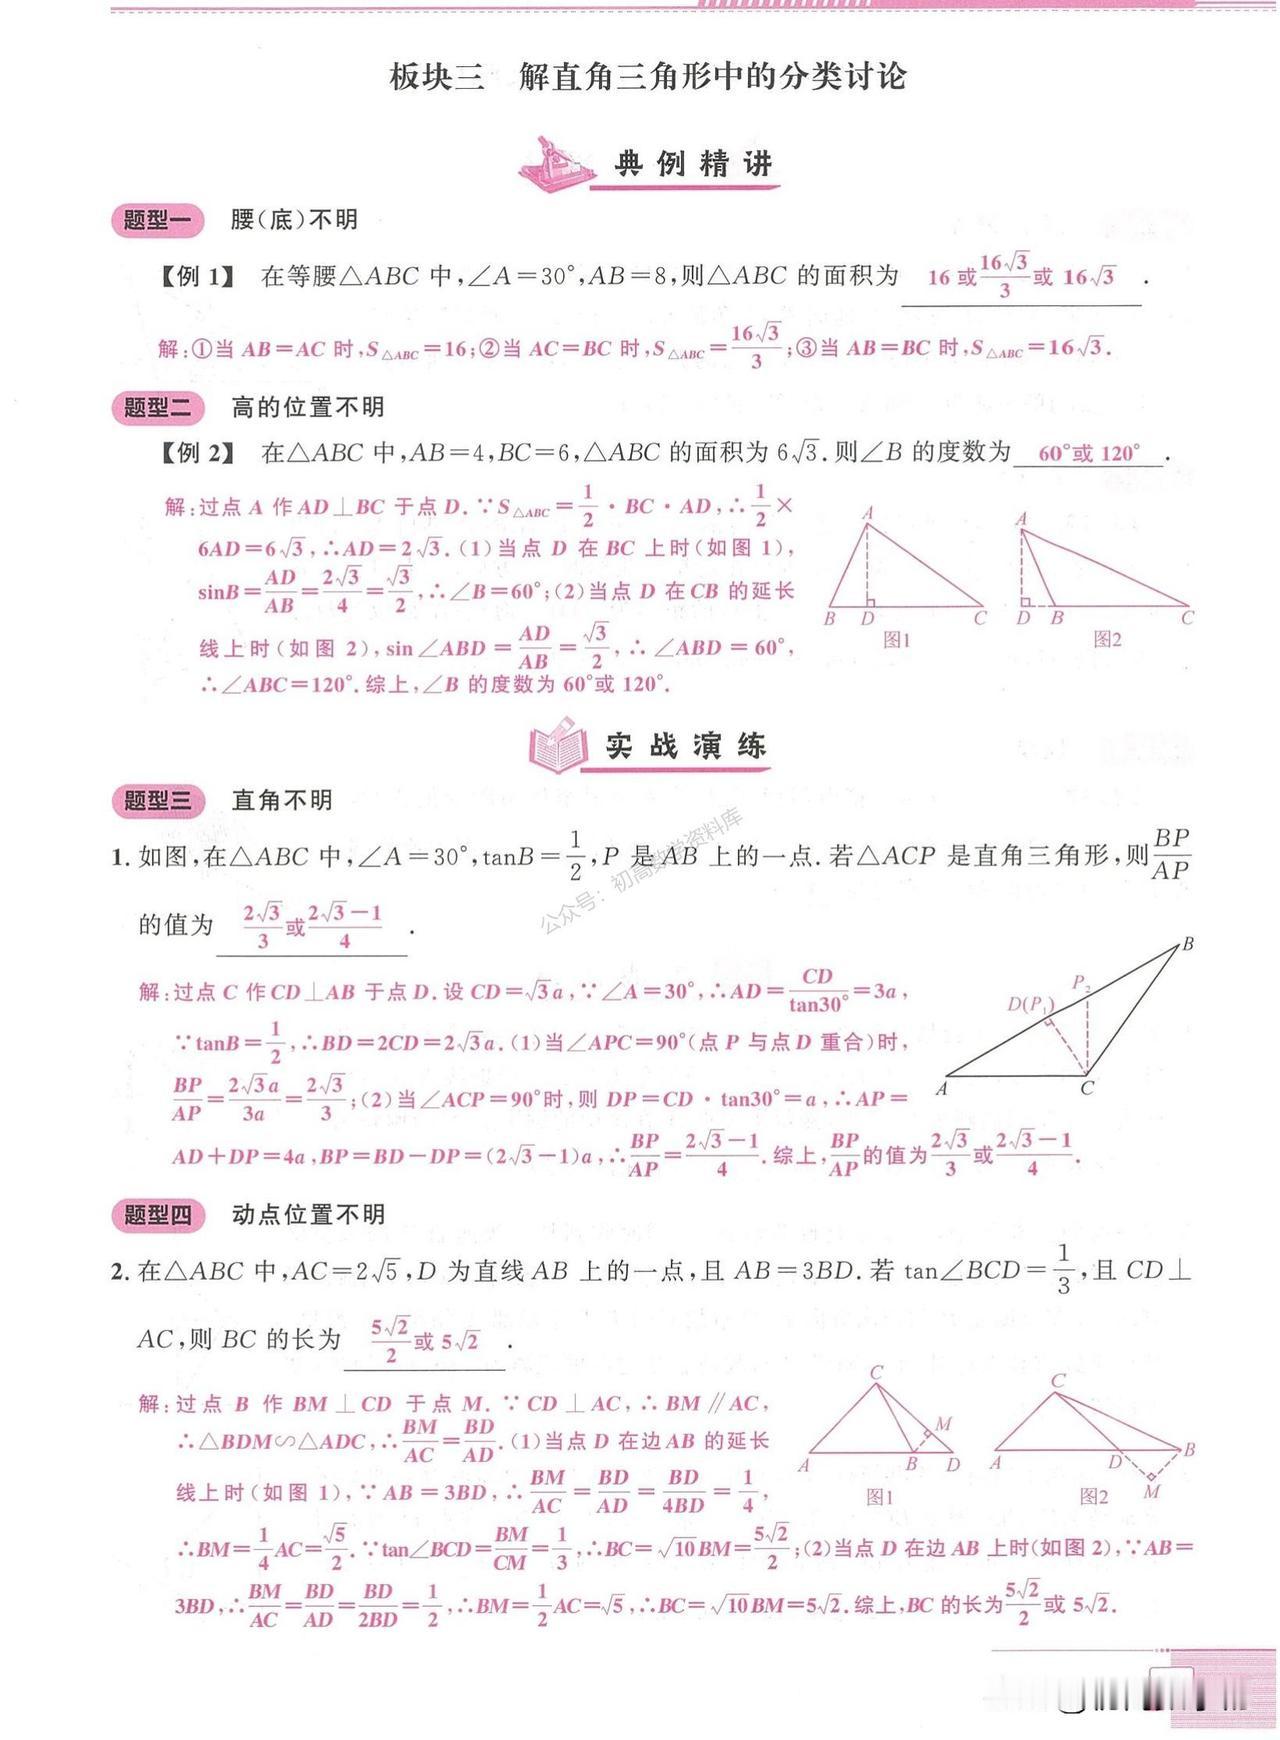 板块三 解直角三角形中的分类讨论
典例精讲
题型一 腰(底)不明
【例1】 在等腰△ABC中,∠A=30°,AB=8,则△ABC的面积为 16或16√3/3或16√3 .
解:①当AB=AC时,S△ABC=16;②当AC=BC时,S△ABC=16√3/3;③当AB=BC时,S△ABC=16√3.
题型二 高的位置不明
【例2】 在△ABC中,AB=4,BC=6,△ABC的面积为6√3.则∠B的度数为 60°或120° .
解:过点A作AD⊥BC于点D.∵S△ABC=1/2·BC·AD,∴1/2×
6AD=6√3,∴AD=2√3.(1)当点D在BC上时(如图1),
sinB=AD/AB=2√3/4=√3/2,∴∠B=60°;(2)当点D在CB的延长
线上时(如图2),sin∠ABD=AD/AB=√3/2,∴∠ABD=60°,
∴∠ABC=120°.综上,∠B的度数为60°或120°.
A
B D C
图1
A
D B C
图2
实战演练
题型三 直角不明
1.如图,在△ABC中,∠A=30°,tanB=1/2,P是AB上的一点.若△ACP是直角三角形,则BP/AP
的值为 2√3/3或(2√3-1)/4 .
公众号:初高数学资料库
解:过点C作CD⊥AB于点D.设CD=√3a,∵∠A=30°,∴AD=CD/tan30°=3a,
∵tanB=1/2,∴BD=2CD=2√3a.(1)当∠APC=90°(点P与点D重合)时,
BP/AP=2√3a/3a=2√3/3;(2)当∠ACP=90°时,则DP=CD·tan30°=a,∴AP=
AD+DP=4a,BP=BD-DP=(2√3-1)a,∴BP/AP=(2√3-1)/4.综上,BP/AP的值为2√3/3或(2√3-1)/4.
B
P₂
D(P₁)
A C
题型四 动点位置不明
2.在△ABC中,AC=2√5,D为直线AB上的一点,且AB=3BD.若tan∠BCD=1/3,且CD⊥
AC,则BC的长为 5√2/2或5√2 .
解:过点B作BM⊥CD于点M.∵CD⊥AC,∴BM∥AC,
∴△BDM∽△ADC,∴BM/AC=BD/AD.(1)当点D在边AB的延长
线上时(如图1),∵AB=3BD,∴BM/AC=BD/AD=BD/4BD=1/4,
∴BM=1/4AC=√5/2.∵tan∠BCD=BM/CM=1/3,∴BC=√10BM=5√2/2;(2)当点D在边AB上时(如图2),∵AB=
3BD,∴BM/AC=BD/AD=BD/2BD=1/2,∴BM=1/2AC=√5,∴BC=√10BM=5√2.综上,BC的长为5√2/2或5√2.
C
M
A B D
图1
C
A D B
M
图2